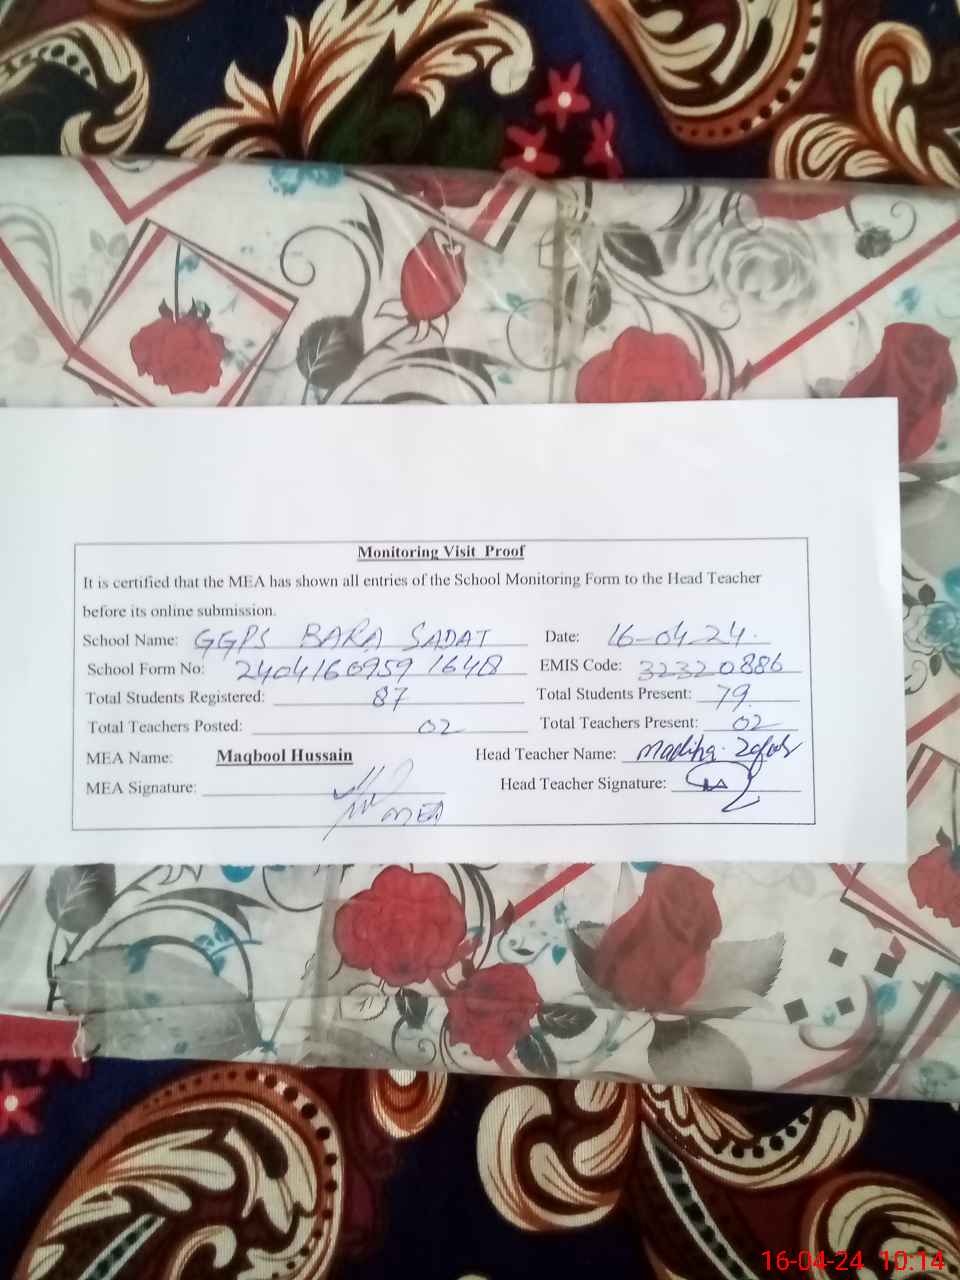 Monitoring Visit Proof
It is certified that the MEA has shown all entries of the School Monitoring Form to the Head Teacher
before its online submission.
School Name: GGPS BARA SADAT Date: 16-04-24.
School Form No: 2404160959 1648 EMIS Code: 32320886
Total Students Registered: 87 Total Students Present: 79
Total Teachers Posted: 02 Total Teachers Present: 02
MEA Name: Maqbool Hussain Head Teacher Name: Madiha
MEA Signature: Head Teacher Signature:
MEA
16-04-24 10:14